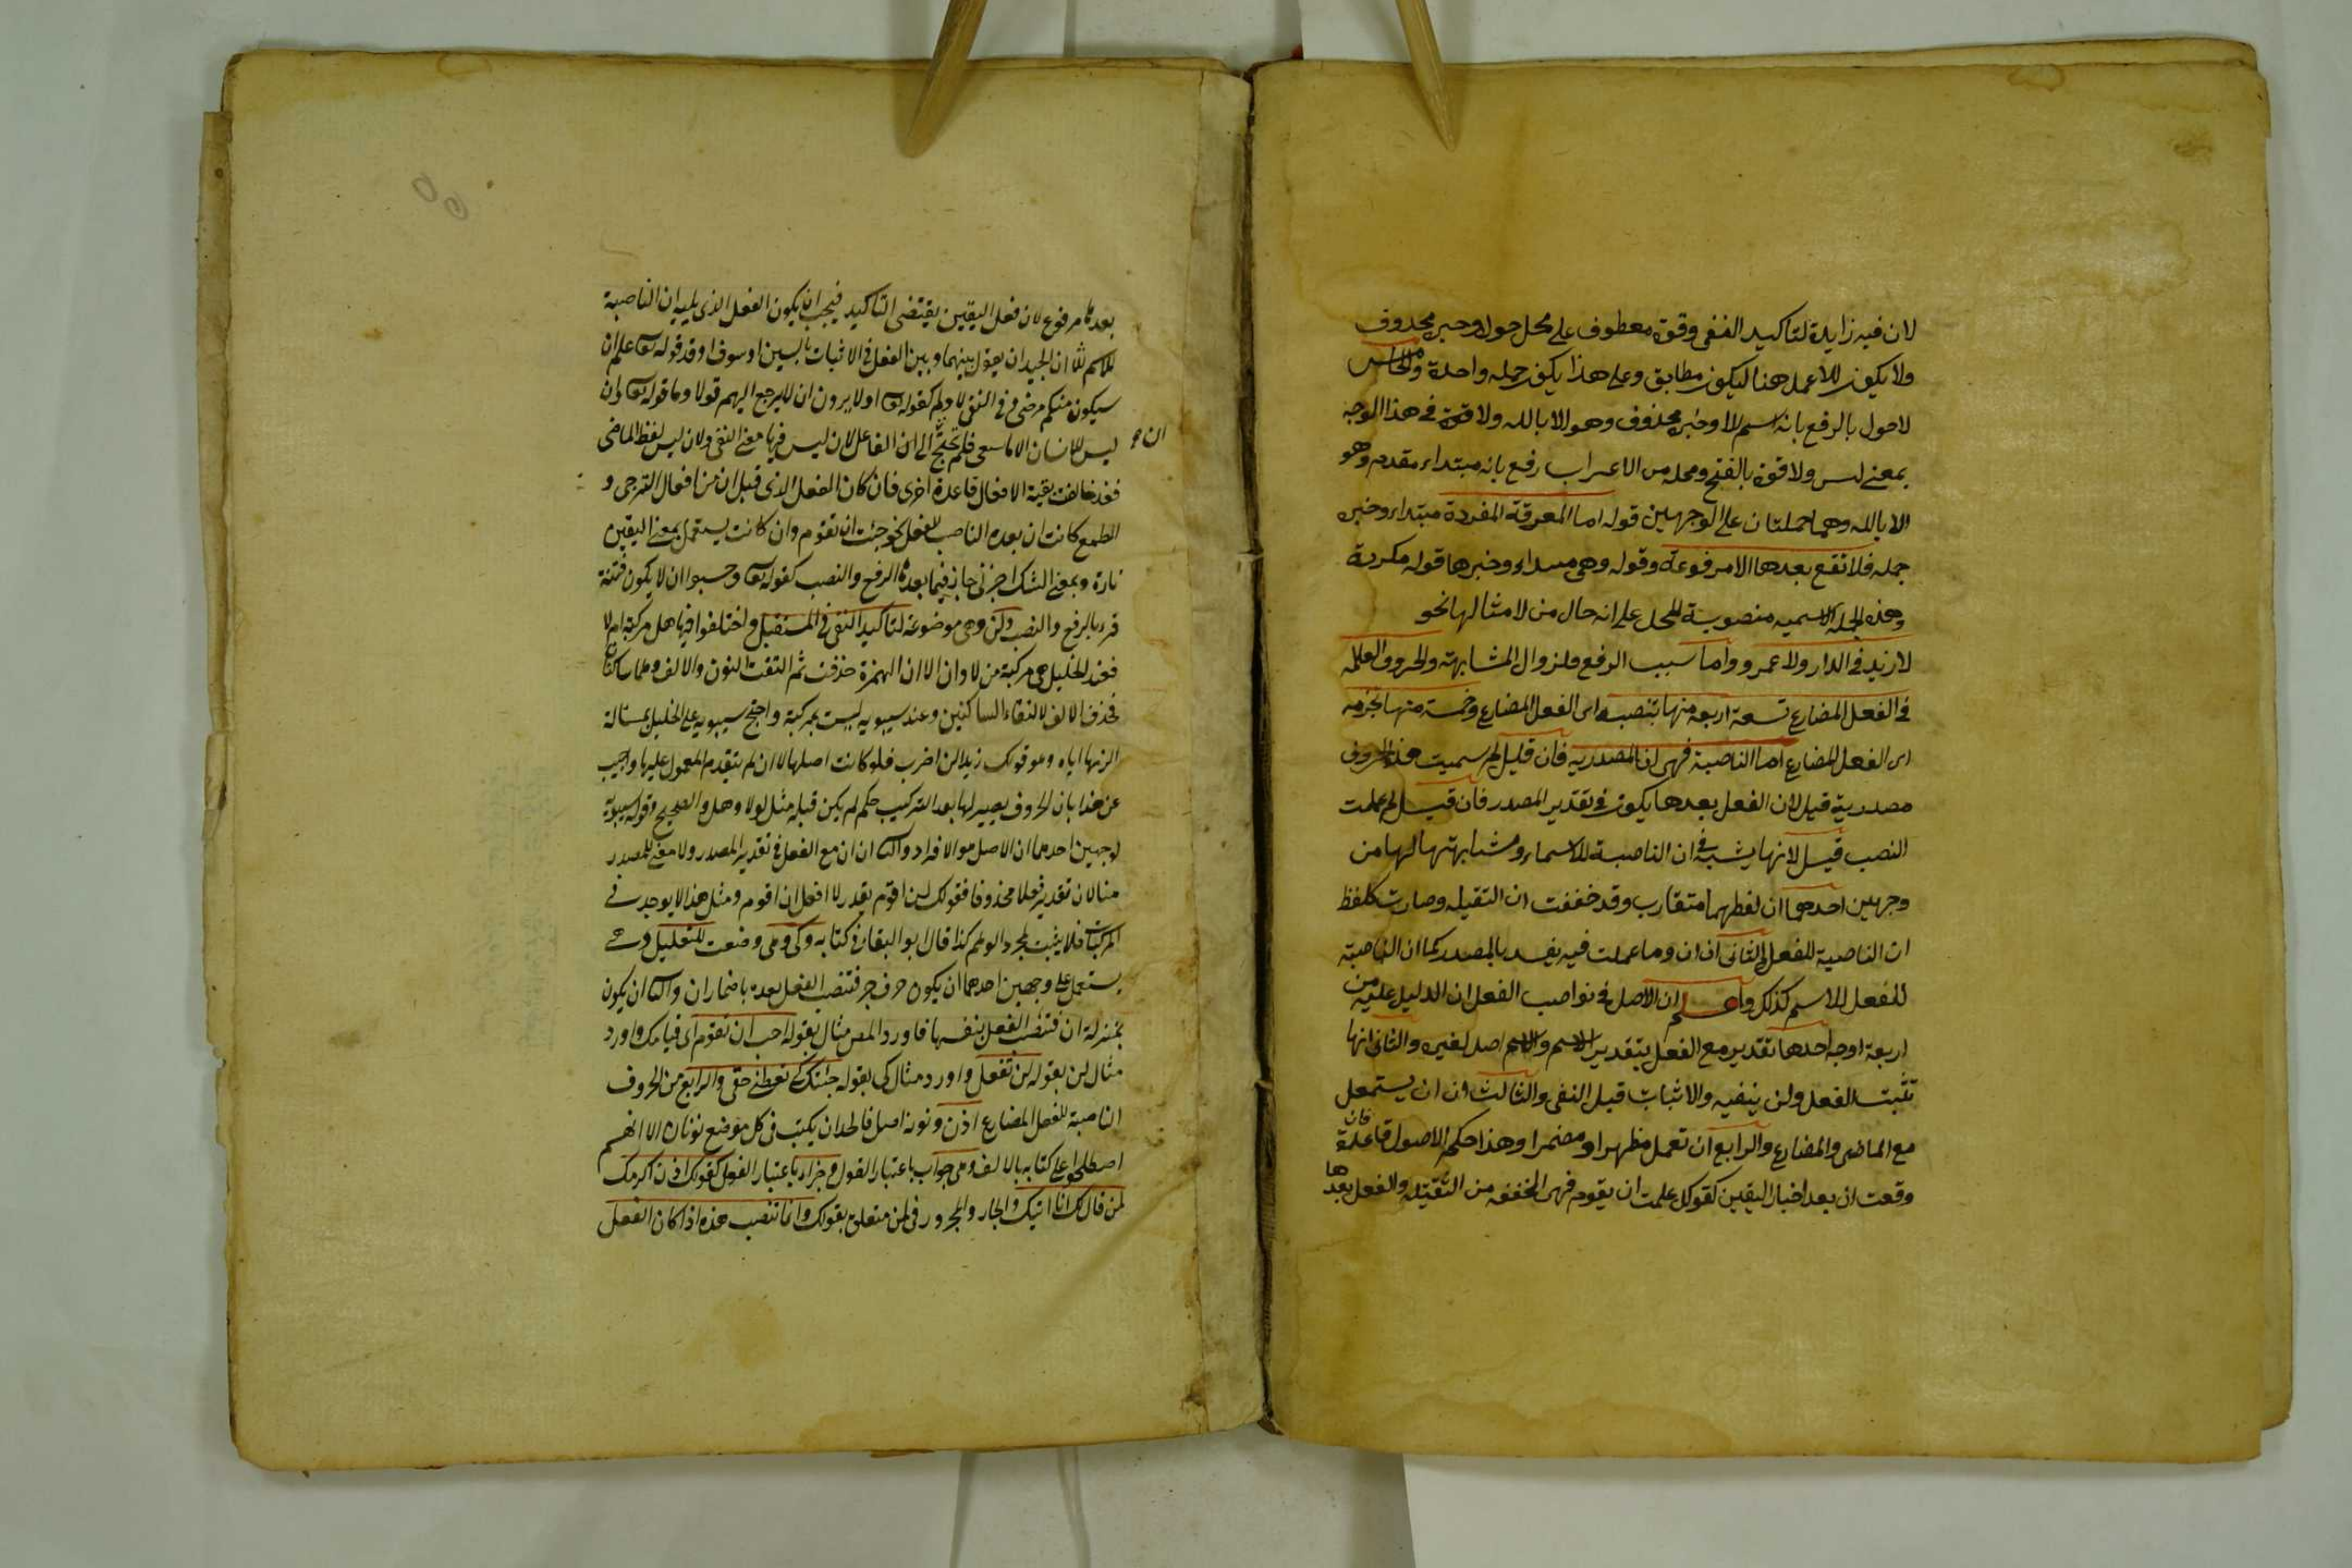 لان فيه زايدة لتاكيد النفى وقوة معطوف على محل حول وخبره محذوف
ولا يكون للا عمل هنا ليكون مطابق وعلى هذا يكون جمله واحدة والخامس
لا حول بالرفع بانه اسم لا وخبره محذوف وهو الا بالله ولا قوة فى هذا الوجه
بمعنى ليس ولا قوة بالفتح ومحله من الاعراب رفع بانه مبتداء مقدم وهو
الا بالله وهما جملتان على الوجهين قوله اما المعرفة المفردة مبتداء وخبره
جمله فلا تقع بعدها الا مرفوعة وقوله وهى مبتداء وخبرها قوله مكررة
وهذه الجملة الاسميه منصوبة المحل على انه حال من لا مثالها نحو
لا زيد فى الدار ولا عمرو واما سبب الرفع فلزوال المشابهة والحروف العاملة
فى الفعل المضارع تسعة اربعة منها تنصبه اى الفعل المضارع وخمسة منها تجزمه
اى الفعل المضارع اما الناصبة فهى ان المصدريه فان قيل لم سميت هذه الحروف
مصدرية قيل لان الفعل بعدها يكون فى تقدير المصدر فان قيل لم عملت
النصب قيل لانها يشبه فى ان الناصبة للاسماء ومشابهتها لها من
وجهين احدهما ان لفظهما متقارب وقد خففت ان الثقيله وصارت كلفظ
ان الناصبة للفعل والثانى ان ان وما عملت فيه يفسد بالمصدر كما ان الناصبة
للفعل للاسم كذلك واعلم ان الاصل فى نواصب الفعل ان الدليل عليه من
اربعة اوجه احدها تقديره مع الفعل بتقدير الاسم والاسم اصل لغيره والثانى انها
تثبت الفعل ولن ينفيه والاثبات قبل النفى والثالث ان ان يستعمل
مع الماضى والمضارع والرابع ان تعمل مظهرا و مضمرا وهذا حكم الاصول قاعدة فان
وقعت ان بعد اخبار اليقين كقولك علمت ان يقوم فهى المخففه من الثقيله والفعل بعدها
بعدها مرفوع لان فعل اليقين يقتضى التاكيد فيجب ان يكون الفعل الذى يليه ان الناصبة
للاسم ان الجيد ان يحول بينهما وبين الفعل فى الاثبات بالسين او سوف او قد قوله تعا علم ان
سيكون منكم مرضى وفى النفى لا ولم كقوله تعا اولا يرون ان لا يرجع اليهم قولا وما قوله تعا وان
ليس للانسان الا ما سعى فلم تحتج الى ان الفاعل لان ليس فيها معنى النفى ولان ليس لفظ الماضى
ان
فقد خالفت بقية الافعال قاعدة اخرى فان كان الفعل الذى قبل ان من افعال الترجى و
الطمع كانت ان بعده الناصب للفعل نحو جئت ان تقوم وان كانت يستعمل بمعنى اليقين
تارة وبمعنى الشك اخرى جاز فيما بعدها الرفع والنصب كقوله تعا وحسبوا ان لا يكون فتنة
قرء بالرفع والنصب ولن وهى موضوعة لتاكيد النفى فى المستقبل واختلفوا فيها هل مركبة ام لا
فعند الخليل هى مركبة من لا وان الا ان الهمزة حذفت ثم التقت النون والالف وهما ساكنان
فحذف الالف لالتقاء الساكنين وعند سيبويه ليست بمركبة واحتج سيبويه على الخليل بمسئالة
الزمها اياه وهو قولك زيدا لن اضرب فلو كانت اصلها لا ان لم يتقدم المعمول عليها واجيب
عن هذا بان الحروف يصير لها بعد التركيب حكم لم يكن قبله مثل لولا وهل والصحيح قول سيبويه
لوجهين احدهما ان الاصل هو الافراد والثانى ان ان مع الفعل فى تقدير المصدر ولا معنى للمصدر
هنا لان تقدير فعلا محذوفا فقولك لن اقوم يقدر لا افعل ان اقوم ومثل هذا لا يوجد فى
المركبات فلا يثبت لمجرد الوهم كذا قال ابو البقاء فى كتابه وكى وهى وضعت للتعليل وهى
يستعمل على وجهين احدهما ان يكون حرف جر فتنصب الفعل بعده باضمار ان والثانى ان يكون
بمنزلة ان فتنصب الفعل بنفسها فاورد المص مثال بقوله احب ان تقوم اى قيامك واورد
مثال لن بقوله لن تفعل واورد مثال كى بقوله جئتك كى تعطنى حقى والرابع من الحروف
الناصبة للفعل المضارع اذن ونونه اصل فالحد ان يكتب فى كل موضع نونان الا انهم
اصطلحوا على كتابه بالالف وهى جواب باعتبار القول وجزاء باعتبار الفعل كقولك اذن اكرمك
لمن قال لك انا اتيك والجار والمجرور فى لمن متعلق بقولك وانما تنصب هذه اذا كان الفعل